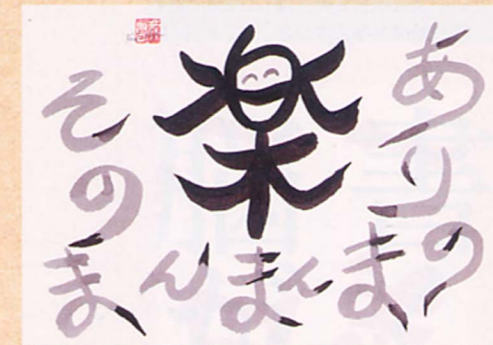 楽
ありのまんま
そのまんま